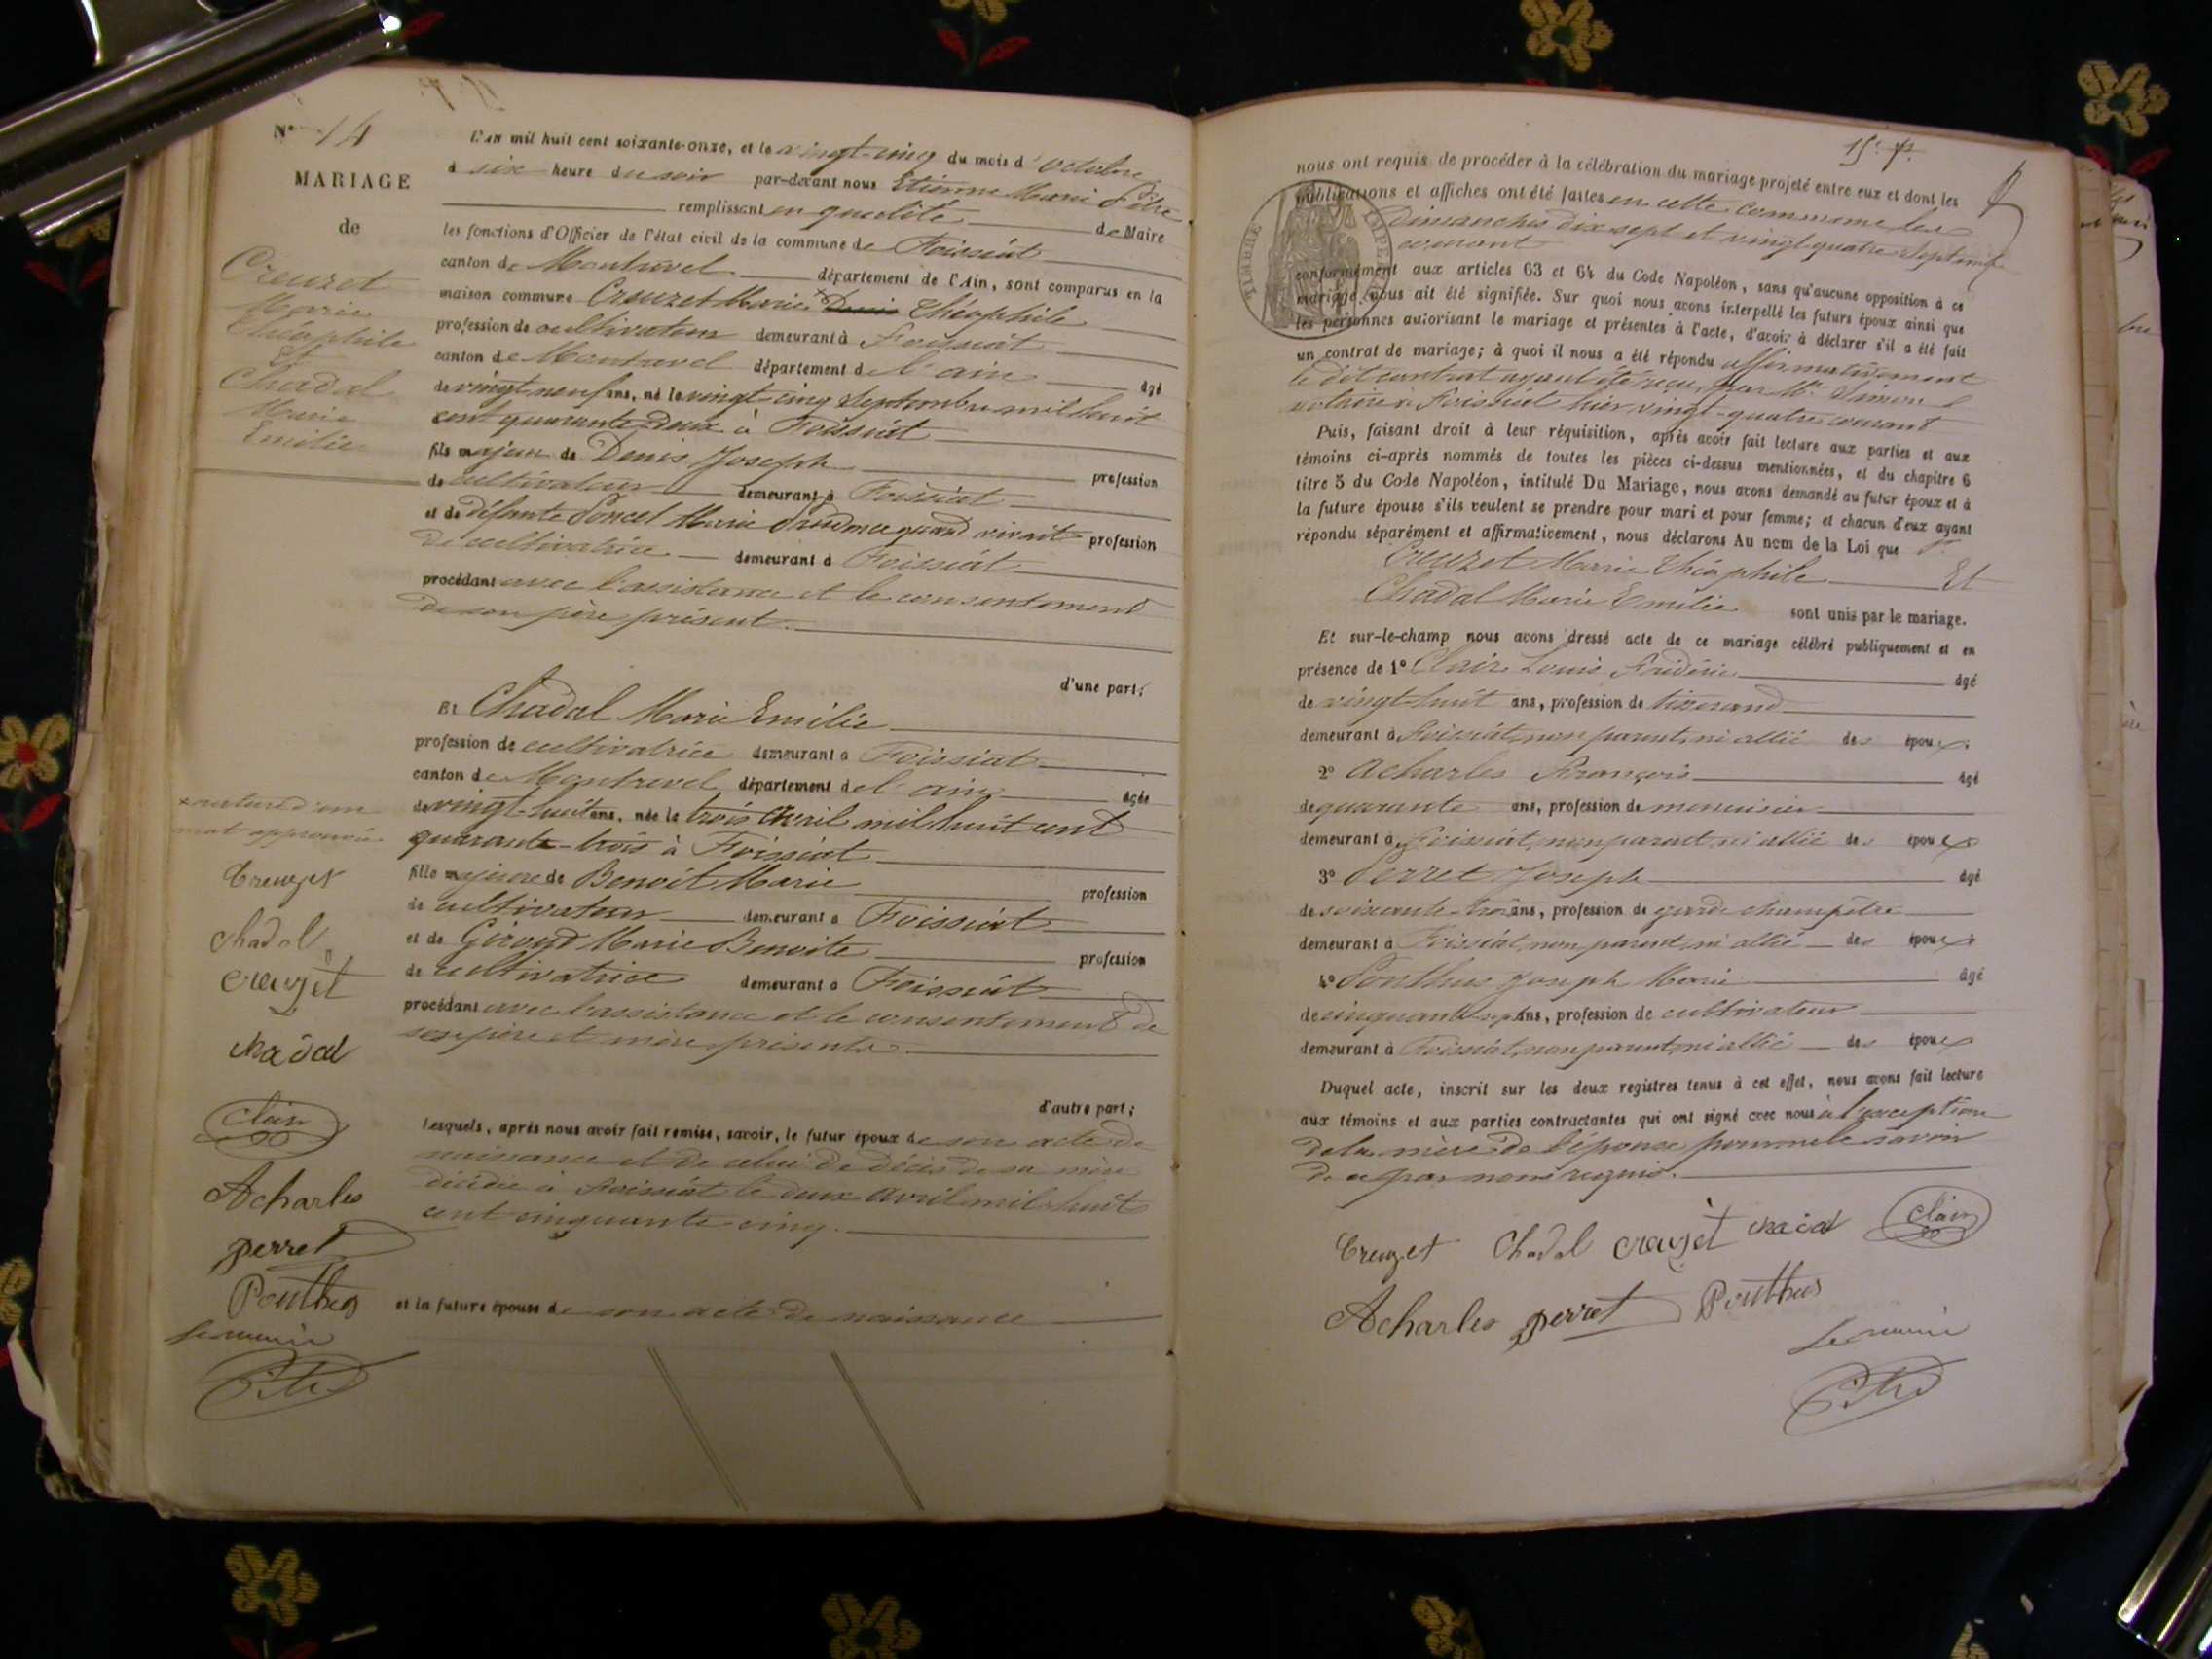 N° 14
MARIAGE
de
Creuzet
Marie
Théophile
Et
Chadal
Marie
Emilie
L'an mil huit cent soixante-onze, et le vingt-cinq du mois d'octobre
à six heure du soir par-devant nous Etienne Marie Pitre
remplissant en qualité de Maire
les fonctions d'Officier de l'état civil de la commune de Foissiat
canton de Montrevel département de l'Ain, sont comparus en la
maison commune Creuzet Marie × Denis Théophile
profession de cultivateur demeurant à Foissiat
canton de Montrevel département de l'ain âgé
de vingt neuf ans, né le vingt cinq septembre mil huit
cent quarante-deux à Foissiat
fils majeur de Denis Joseph profession
de cultivateur demeurant à Foissiat
et de défunte Poncet Marie Prudence quand vivait profession
de cultivatrice demeurant à Foissiat
procédant avec l'assistance et le consentement
de son père présent.
d'une part;
Et Chadal Marie Emilie
profession de cultivatrice demeurant à Foissiat
canton de Montrevel département de l'ain âgée
de vingt-huit ans, née le trois avril mil huit cent
quarante-trois à Foissiat
fille majeure de Benoît Marie profession
de cultivateur demeurant à Foissiat
et de Giroud Marie Benoite profession
de cultivatrice demeurant à Foissiat
procédant avec l'assistance et le consentement de
ses père et mère présents
d'autre part;
Lesquels, après nous avoir fait remise, savoir, le futur époux de son acte de
naissance et de celui de décès de sa mère
décédée à Foissiat le deux avril mil huit
cent cinquante cinq.
et la future épouse de son acte de naissance
× rature d'un
mot approuvée
Creuzet
Chadal
Creuzet
Chadal
Clair
Acharles
Perret
Ponthus
Le maire
Pitre
15e
nous ont requis de procéder à la célébration du mariage projeté entre eux et dont les
publications et affiches ont été faites en cette commune les
Dimanches dix sept et vingt quatre septembre
courant
TIMBRE IMPERIAL
conformément aux articles 63 et 64 du Code Napoléon, sans qu'aucune opposition à ce
mariage nous ait été signifiée. Sur quoi nous avons interpellé les futurs époux ainsi que
les personnes autorisant le mariage et présentes à l'acte, d'avoir à déclarer s'il a été fait
un contrat de mariage; à quoi il nous a été répondu affirmativement
le dit contrat ayant été reçu par Me Simon
notaire à Foissiat hier vingt-quatre courant
Puis, faisant droit à leur réquisition, après avoir fait lecture aux parties et aux
témoins ci-après nommés de toutes les pièces ci-dessus mentionnées, et du chapitre 6
titre 5 du Code Napoléon, intitulé Du Mariage, nous avons demandé au futur époux et à
la future épouse s'ils veulent se prendre pour mari et pour femme; et chacun d'eux ayant
répondu séparément et affirmativement, nous déclarons Au nom de la Loi que
Creuzet Marie Théophile Et
Chadal Marie Emilie sont unis par le mariage.
Et sur-le-champ nous avons dressé acte de ce mariage célébré publiquement et en
présence de 1° Clair Louis Frédéric âgé
de vingt-huit ans, profession de tisserand
demeurant à Foissiat, non parent, ni allié des époux.
2° Acharles François âgé
de quarante ans, profession de menuisier
demeurant à Foissiat, non parent ni allié des époux
3° Perret Joseph âgé
de soixante-trois ans, profession de garde champêtre
demeurant à Foissiat, non parent, ni allié des époux
4° Ponthus Joseph Marie âgé
de cinquante sept ans, profession de cultivateur
demeurant à Foissiat, non parent, ni allié des époux
Duquel acte, inscrit sur les deux registres tenus à cet effet, nous avons fait lecture
aux témoins et aux parties contractantes qui ont signé avec nous à l'exception
de la mère de l'épouse pour ne le savoir
de ce par nous requis.
Creuzet Chadal Creuzet Chadal Clair
Acharles Perret Ponthus
Le maire
Pitre